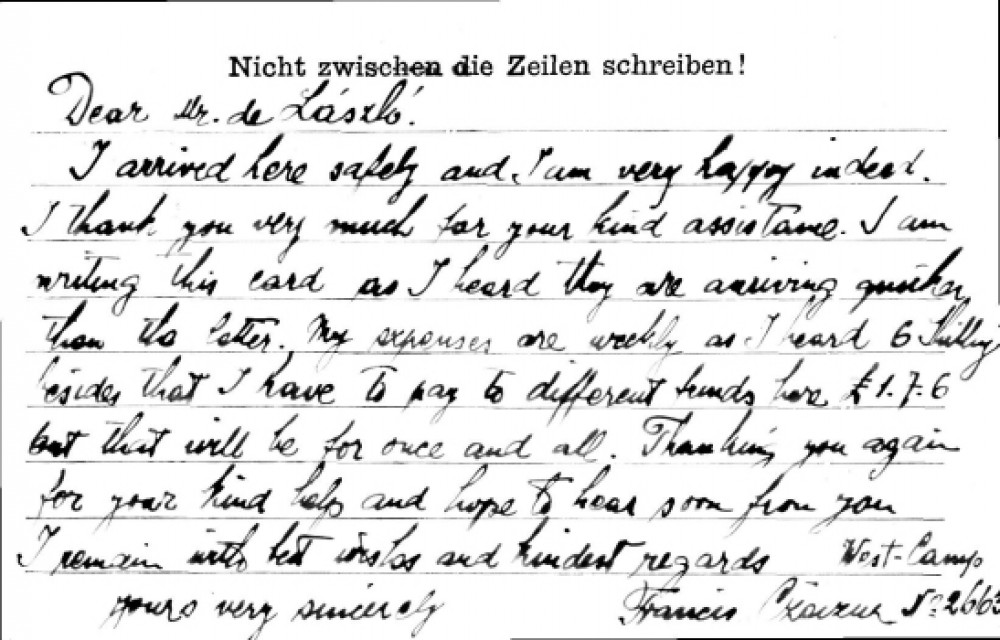 Nicht zwischen die Zeilen schreiben!
Dear Mr. de László.
I arrived here safely and I am very happy indeed.
I thank you very much for your kind assistance. I am
writing this card as I heard they are arriving quicker
than the letter. My expenses are weekly as I heard 6 Shilling
besides that I have to pay to different funds here £1.7.6
but that will be for once and all. Thanking you again
for your kind help and hope to hear soon from you
I remain with best wishes and kindest regards West-Camp
yours very sincerely Francis No 2663